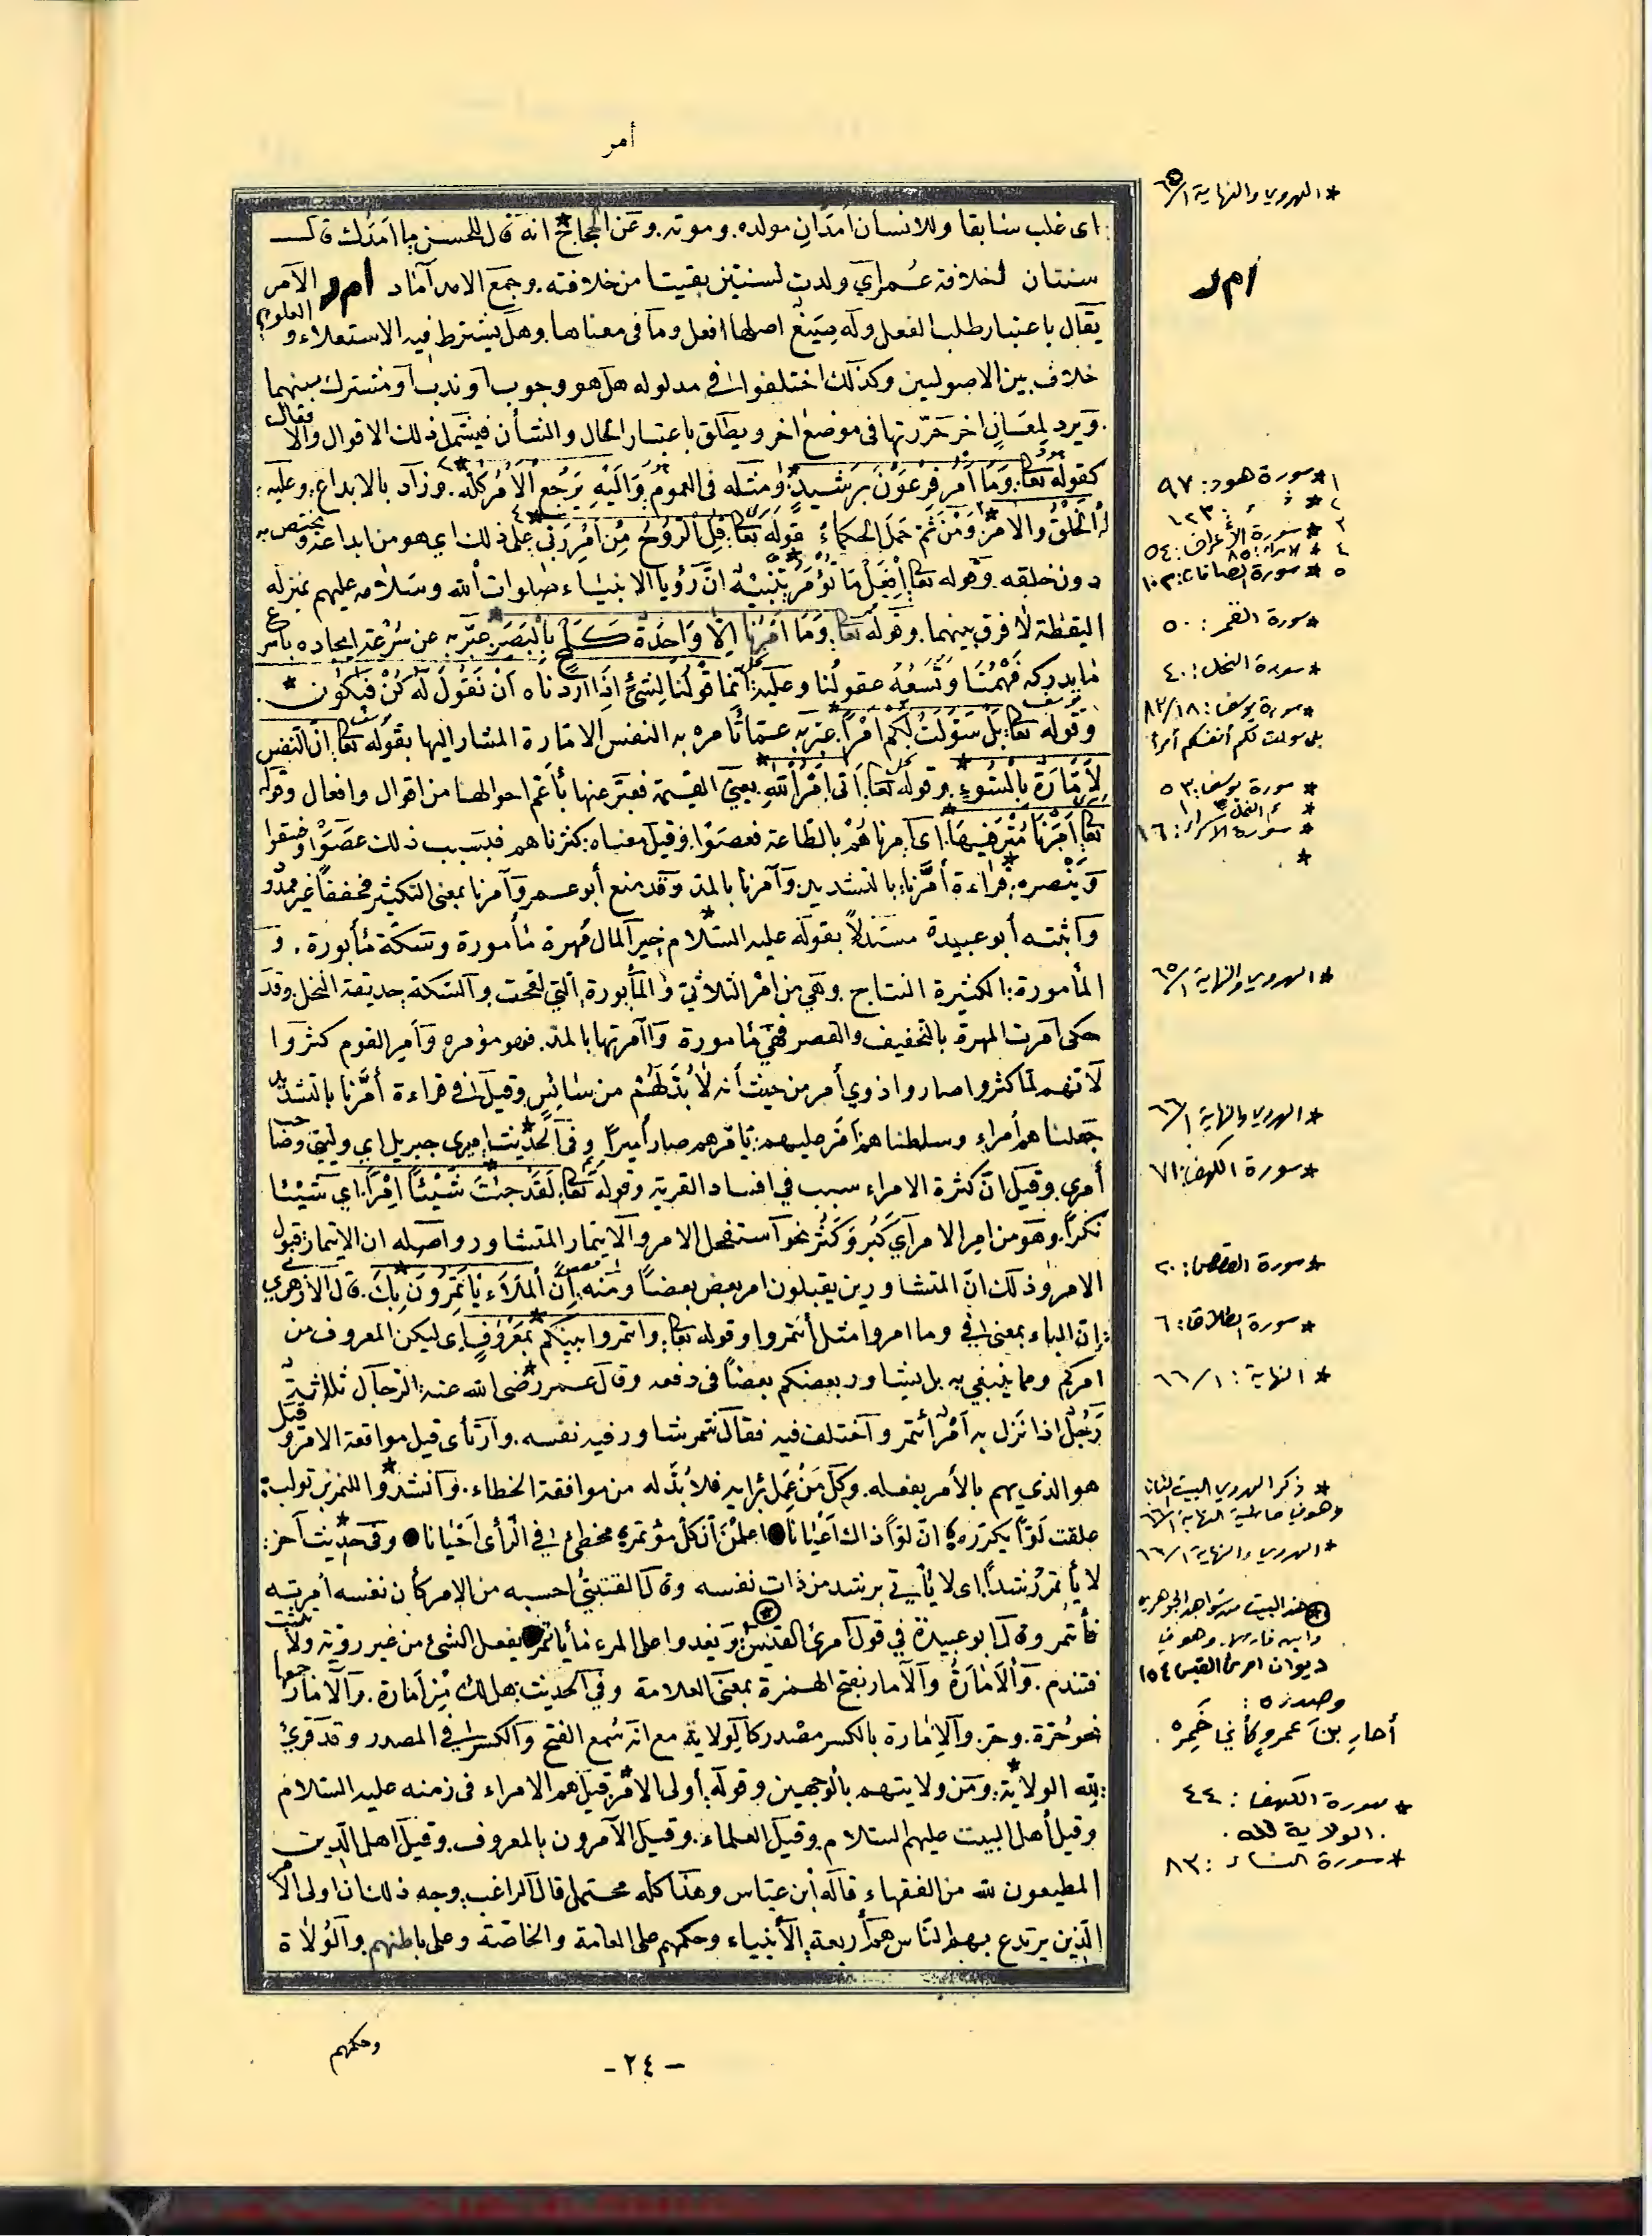 أمر
اى غلب سابقا وللانسان أمدان مولده. وموته. وعن الحجاج* انه قال للحسن ما امدك قال
سنتان لخلافة عمر اي ولدت لسنتين بقيتا من خلافته. وجمع الامد آماد أ م ر الأمر
يقال باعتبار طلب الفعل وله صيغ اصلها افعل وما فى معناها. وهل يشترط فيه الاستعلاء و العلو؟
خلاف بين الاصوليين وكذلك اختلفوا فى مدلوله هل هو وجوب أو ندب أو مشترك بينهما
ويرد لمعان اخر حررتها فى موضع اخر ويطلق باعتبار الحال والشأن فيشمل ذلك الاقوال والافعال
كقوله تعا: وَمَا أَمْرُ فِرْعَوْنَ بِرَشِيدٍ* ومثله فى العموم وَإِلَيْهِ يَرْجِعُ الْأَمْرُ كُلُّهُ.* وزاد بالابداع وعليه:
لهُ الْخَلْقُ وَالأمْرُ* وَمْنْ ثم حمل الحكماء قوله تعا: قُلِ الرُّوحُ مِنْ أَمْرِ رَبّى* على ذلك اي هو من ابداعه ويختص به
دون خلقه. وقوله تعا افْعَلْ مَا تُؤْمَرُ* تنبيه انّ رؤيا الانبياء صلوات الله وسلامه عليهم بمنزلة
اليقظة لا فرق بينهما. وقوله تعا. وَمَا أَمْرُنَا إِلَّا وَاحِدَةٌ كَلَمْحٍ بِالْبَصَرِ* عبّر به عن سُرْعة ايجاده بأسرع
ما يدركه فهْمُنَا وتَسَعُهُ عقولُنا وعليه: إنّما قَوْلُنا لِشَىْءٍ إِذَا أَرَدْنَاه أَنْ نَقُولَ لَهُ كُنْ فَيَكُون*.
وقوله تعا: بَلْ سَوَّلَتْ لَكُم أَمْراً* عبّر به عمّا تأمره به النفس الامّارة المشار اليها بقوله تعا: انّ النفس
لَأَمَّارَةٌ بِالسُّوءِ* وقوله تعا: أَتَى أَمْرُ اللّهِ* يعني القيمة فعبّر عنها بأعمّ احوالها من اقوال وافعال وقوله
تعا أَمَرْنَا مُتْرَفِيهَا* اى أمرناهُمْ بالطّاعة فعصَوْا. وقيل معناه: كثرناهم فبسبب ذلك عصَوْا وفسقوا
وينصره: قراءة* أمَّرنا: بالتشديد. وآمرنا بالمدّ وقد منع أبو عمرو آمرنا بمعنى التكثير مخففاً غير ممدود
وأثبته أبو عبيدة مستدلاً بقوله عليه السّلام* خير المال مُهرة مأمورة وسكّة مأبورة. و
المأمورة: الكثيرة النتاج. وهي من أمر الثلاثيّ والمأبورة التي لقحت والسّكة حديقة النخل وقد
حكى أمرت المهرة بالتخفيف والقصر فهي مأمورة وآمرتها بالمدّ. فهو مؤمره وأمر القوم كثروا
لأنهم لمّا كثروا صاروا ذوي أمر من حيث أنه لا بُدّ لهُم من سائِسٍ وقيل فى قراءة أمَّرنا بالتشديد
جعلناهم أمراء وسلطناهم تأمّر عليهم: تأمّرهم صار أميراً وفى الحديث* اميرى جبريل اي وليّى وصاحب
أمرى. وقيل انّ كثرة الامراء سبب في افساد القرية وقوله تعا: لَقَدْ جِئْتَ شَيْئاً إِمْراً* اي شيئا
نكراً. وهو من امِر الامر أي كَبُر وكثُر نحو استفحل الامر والايتمار التشاور وأصله ان الايتمار قبول
الامر وذلك انّ المتشاورين يقبلون امر بعض بعضاً ومنه إنَّ المَلَأَ يَأْتَمِرُونَ بِكَ*. قال الأزهري
إنّ الباء بمعنى فى وما امروا مثل أئتمروا وقوله تعا: وائتمروا بينكم بمعْرُوفٍ* اى ليكن المعروف من
امركم ومما ينبغي به بل يتشاور بعضكم بعضاً فى دفعه وقال عمر رضى الله عنه* الرجال ثلاثة
رجُل اذا نَزل به أمْرٌ ائتمر واختلف فيه فقال ائتمر شاور فيه نفسه. وارتأى قبل مواقعة الامر وقيل
هو الذي يهم بالأمر يفعله. وكلّ مَنْ عَمِل برأيه فلا بُدّ له من موافقة الخطاء. وأنشدوا* للنمر بن تولب:
علقت لَوّاً يكرّره انّ لوّاً ذاك أعْيانا اعلمْنَ أنْ كلّ مؤتمرٍ مخطئ في الرّأى أحْيانا وفى حديث* آخر:
لا يأتمرُ رُشداً. اى لا يأتي برشد من ذات نفسه وقال القتيبيّ احسبه من الامر كأن نفسه أمرته
فأتمر وقال أبو عبيدة في قول امرئ القيس: ويعدوا على المرء ما يأتمر يفعل الشئ من غير رويّة ولا تثبت
فتندم. والأَمَارَةُ والأمار بفتح الهمزة بمعنى العلامة وفي الحديث: هل لك من أمارة. والأمار جمعها
نحو حُرّة. وحر. والإمارة بالكسر مصدر كالولاية مع انّه سُمع الفتح والكسر في المصدر وقد قرئ
لله الولاية*: ومن ولايتهم بالوجهين وقوله: أولى الامر* قيل هم الامراء فى زمنه عليه السّلام
وقيل أهل البيت عليهم السّلام وقيل العلماء. وقيل الآمرون بالمعروف. وقيل اهل الدّين
المطيعون لله من الفقهاء قاله ابن عبّاس وهذا كله محتمل قال الراغب وجه ذلك ان اولى الأمر
الذين يرتدع بهم النّاس هم أربعة: الأنبياء وحكمهم على العامة والخاصّة وعلى باطنهم. والوُلاة
وحكمهم
- ٢٤ -
* الهروي والنهاية ٦٥/١
أ م ر
١ * سورة هود: ٩٧
٢ * : ١٢٣
٣ * سورة الأعراف: ٥٤
٤ * الاسراء: ٨٥
٥ * سورة الصافات: ١٠٢
* سورة القمر: ٥٠
* سورة النحل: ٤٠
* سورة يوسف: ٨٣/١٨
بل سولت لكم أنفسكم أمراً
* سورة يوسف: ٥٣
* النحل: ١
* سورة الاسراء: ١٦
*
* الهروي والنهاية ٦٥/١
* الهروي والنهاية ٦٦/١
* سورة الكهف: ٧١
* سورة القصص: ٢٠
* سورة الطلاق: ٦
* النهاية: ٦٦/١
* ذكر الهروي البيت الثاني
وهو في حاشية النهاية ٦٦/١
* الهروي والنهاية ٦٦/١
* هذا البيت من شواهد الجوهري
وابن فارس. وهو في
ديوان امرئ القيس ١٥٤
وصدره:
أحارِ بنَ عمرٍو كأني خَمِره.
* سورة الكهف: ٤٤
. الولاية لله.
* سورة النساء: ٨٣